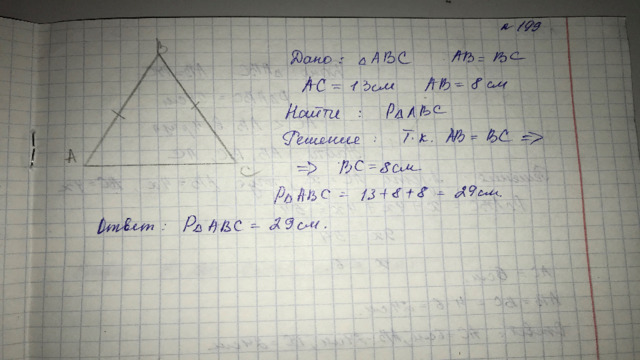 № 199
B
Дано: △ABC AB = BC
AC = 13см AB = 8 см
Найти: P△ABC
A
C
Решение: Т.к. AB = BC =>
=> BC = 8см
P△ABC = 13 + 8 + 8 = 29см.
Ответ: P△ABC = 29см.